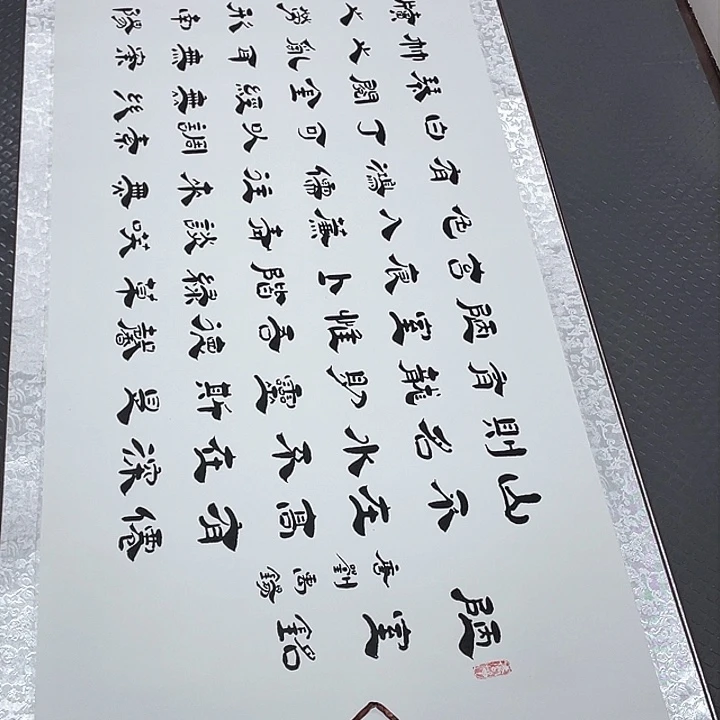 陋室銘
唐劉禹錫
山不在高有僊
則名水不在深
有龍則靈斯是
陋室惟吾德馨
苔痕上階綠草
色入簾青談笑
有鴻儒往來無
白丁可以調素
琴閱金經無絲
竹之亂耳無案
牘之勞形南陽